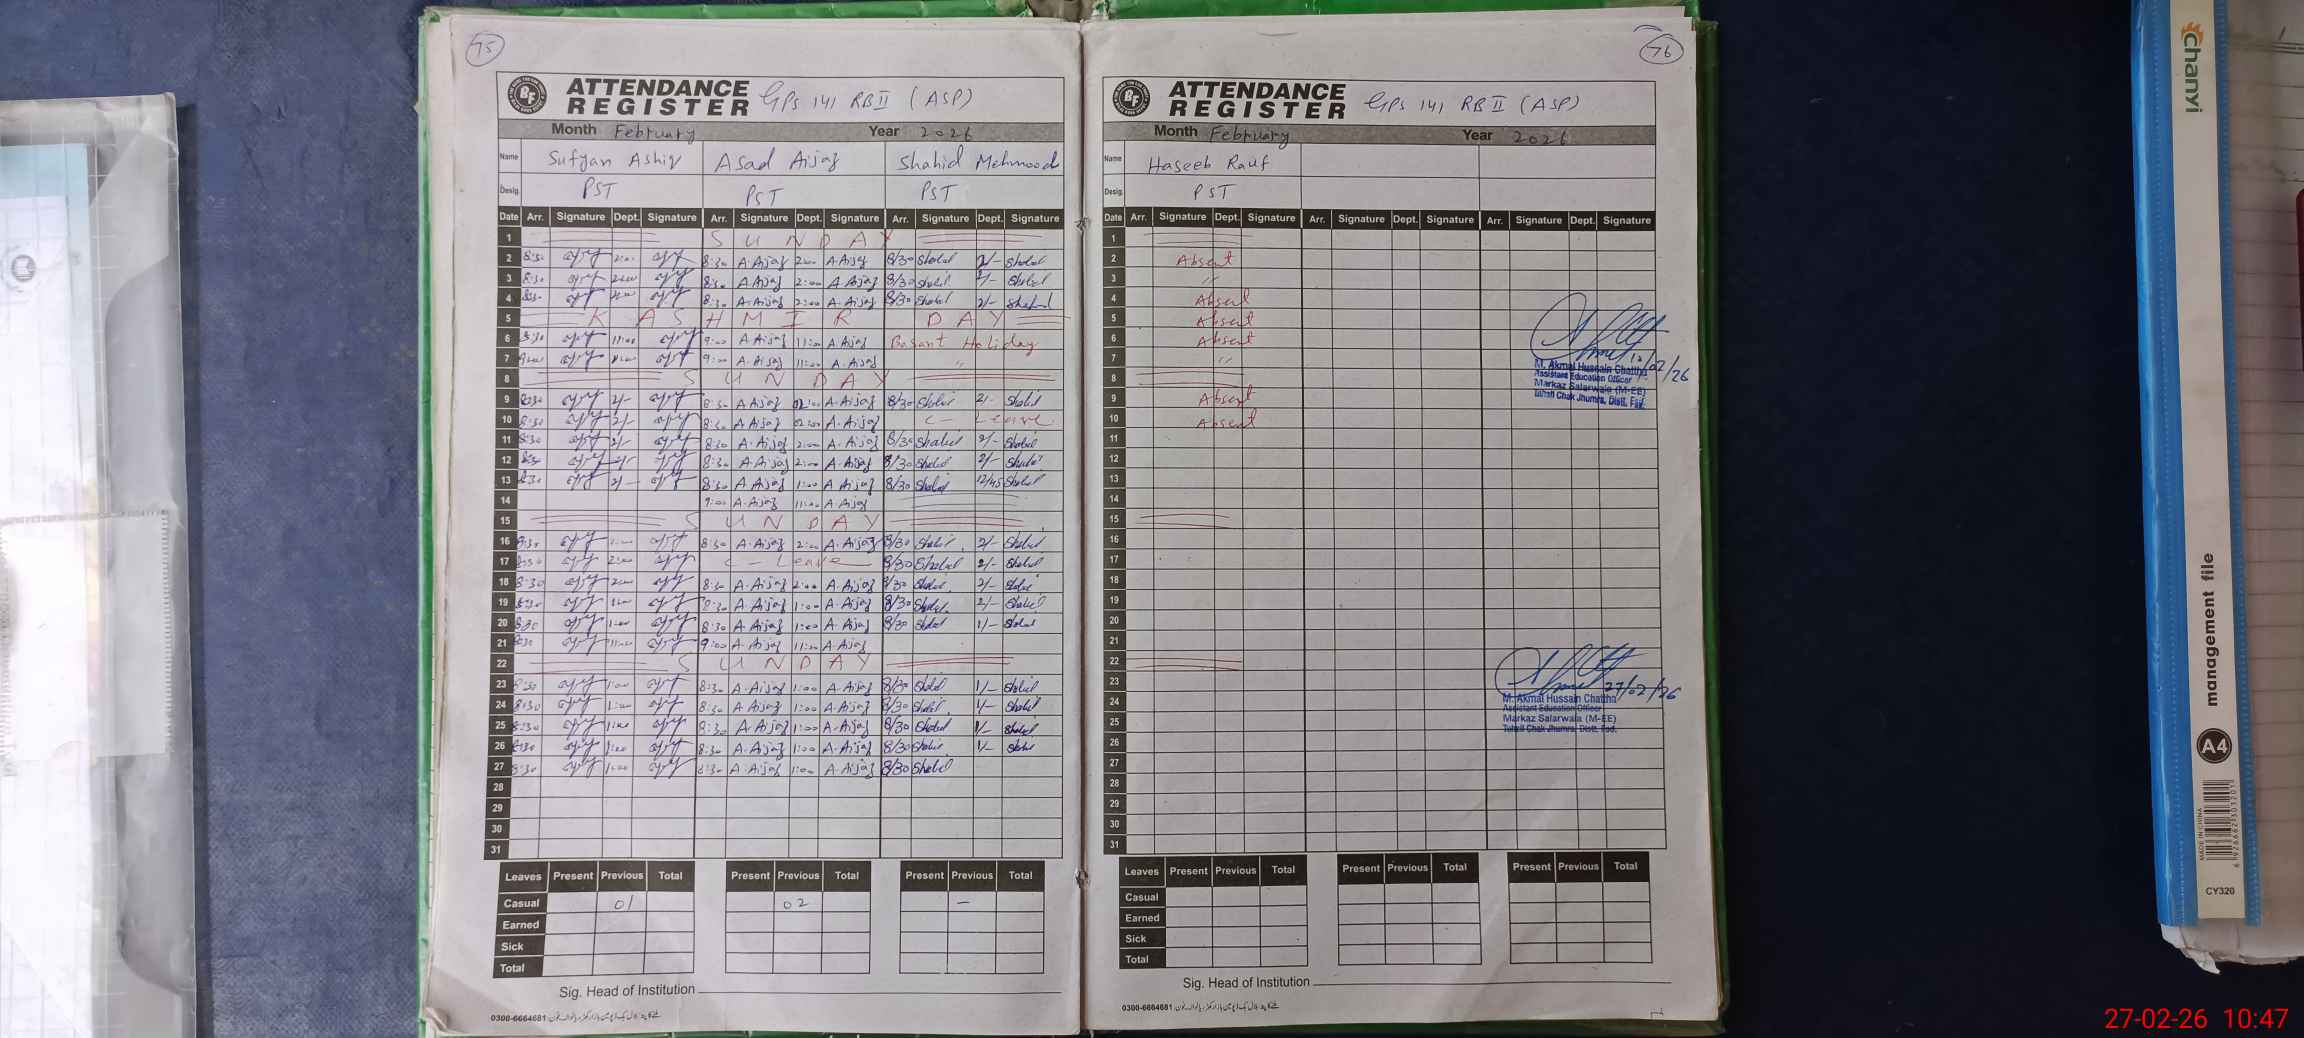 75
ATTENDANCE REGISTER GPS 141 RB II (ASP)
Month February Year 2026
Name Sufyan Ashiq Asad Aijaz Shahid Mehmood
Desig. PST PST PST
Date Arr. Signature Dept. Signature Arr. Signature Dept. Signature Arr. Signature Dept. Signature
1 SUNDAY
2 8:30 2:00 8:30 A.Aijaz 2:00 A.Aijaz 8/30 Shahid 2/- Shahid
3 8:30 2:00 8:30 A.Aijaz 2:00 A.Aijaz 8/30 Shahid 2/- Shahid
4 8:30 2:00 8:30 A.Aijaz 2:00 A.Aijaz 8/30 Shahid 2/- Shahid
5 KASHMIR DAY
6 8:30 11:00 9:00 A.Aijaz 11:00 A.Aijaz Basant Holiday
7 9:00 11:00 9:00 A.Aijaz 11:00 A.Aijaz "
8 SUNDAY
9 8:30 2/- 8:30 A.Aijaz 02:00 A.Aijaz 8/30 Shahid 2/- Shahid
10 8:30 2/- 8:30 A.Aijaz 02:00 A.Aijaz C - Leave
11 8:30 2/- 8:30 A.Aijaz 2:00 A.Aijaz 8/30 Shahid 2/- Shahid
12 8:30 2/- 8:30 A.Aijaz 2:00 A.Aijaz 8/30 Shahid 2/- Shahid
13 8:30 2/- 8:30 A.Aijaz 1:00 A.Aijaz 8/30 Shahid 12/45 Shahid
14 9:00 A.Aijaz 11:00 A.Aijaz
15 SUNDAY
16 8:30 8:30 A.Aijaz 2:00 A.Aijaz 8/30 Shahid 2/- Shahid
17 8:30 2:00 C - Leave 8/30 Shahid 2/- Shahid
18 8:30 2:00 8:30 A.Aijaz 2:00 A.Aijaz 8/30 Shahid 2/- Shahid
19 8:30 8:30 A.Aijaz 1:00 A.Aijaz 8/30 Shahid 2/- Shahid
20 8:30 1:00 8:30 A.Aijaz 1:00 A.Aijaz 8/30 Shahid 1/- Shahid
21 8:30 11:00 9:00 A.Aijaz 11:00 A.Aijaz
22 SUNDAY
23 8:30 1:00 8:30 A.Aijaz 1:00 A.Aijaz 8/30 Shahid 1/- Shahid
24 8:30 1:00 8:30 A.Aijaz 1:00 A.Aijaz 8/30 Shahid 1/- Shahid
25 8:30 1:00 8:30 A.Aijaz 1:00 A.Aijaz 8/30 Shahid 1/- Shahid
26 8:30 1:00 8:30 A.Aijaz 1:00 A.Aijaz 8/30 Shahid 1/- Shahid
27 8:30 1:00 8:30 A.Aijaz 1:00 A.Aijaz 8/30 Shahid
28
29
30
31
Leaves Present Previous Total Present Previous Total Present Previous Total
Casual 01 02 -
Earned
Sick
Total
Sig. Head of Institution
0300-6664681
76
ATTENDANCE REGISTER GPS 141 RB II (ASP)
Month February Year 2026
Name Haseeb Rauf
Desig. PST
Date Arr. Signature Dept. Signature Arr. Signature Dept. Signature Arr. Signature Dept. Signature
1
2 Absent
3 "
4 Absent
5 Absent
6 Absent
7 "
8
9 Absent
10 Absent
11
12
13
14
15
16
17
18
19
20
21
22
23
24
25
26
27
28
29
30
31
12/02/26
M. Akmal Hussain Chattha
Assistant Education Officer
Markaz Salarwala (M-EE)
Tehsil Chak Jhumra, Distt, Fsd.
27/02/26
M. Akmal Hussain Chattha
Assistant Education Officer
Markaz Salarwala (M-EE)
Tehsil Chak Jhumra, Distt, Fsd.
Leaves Present Previous Total Present Previous Total Present Previous Total
Casual
Earned
Sick
Total
Sig. Head of Institution
0300-6664681
chanyi
management file
A4
MADE IN CHINA
CY320
27-02-26 10:47